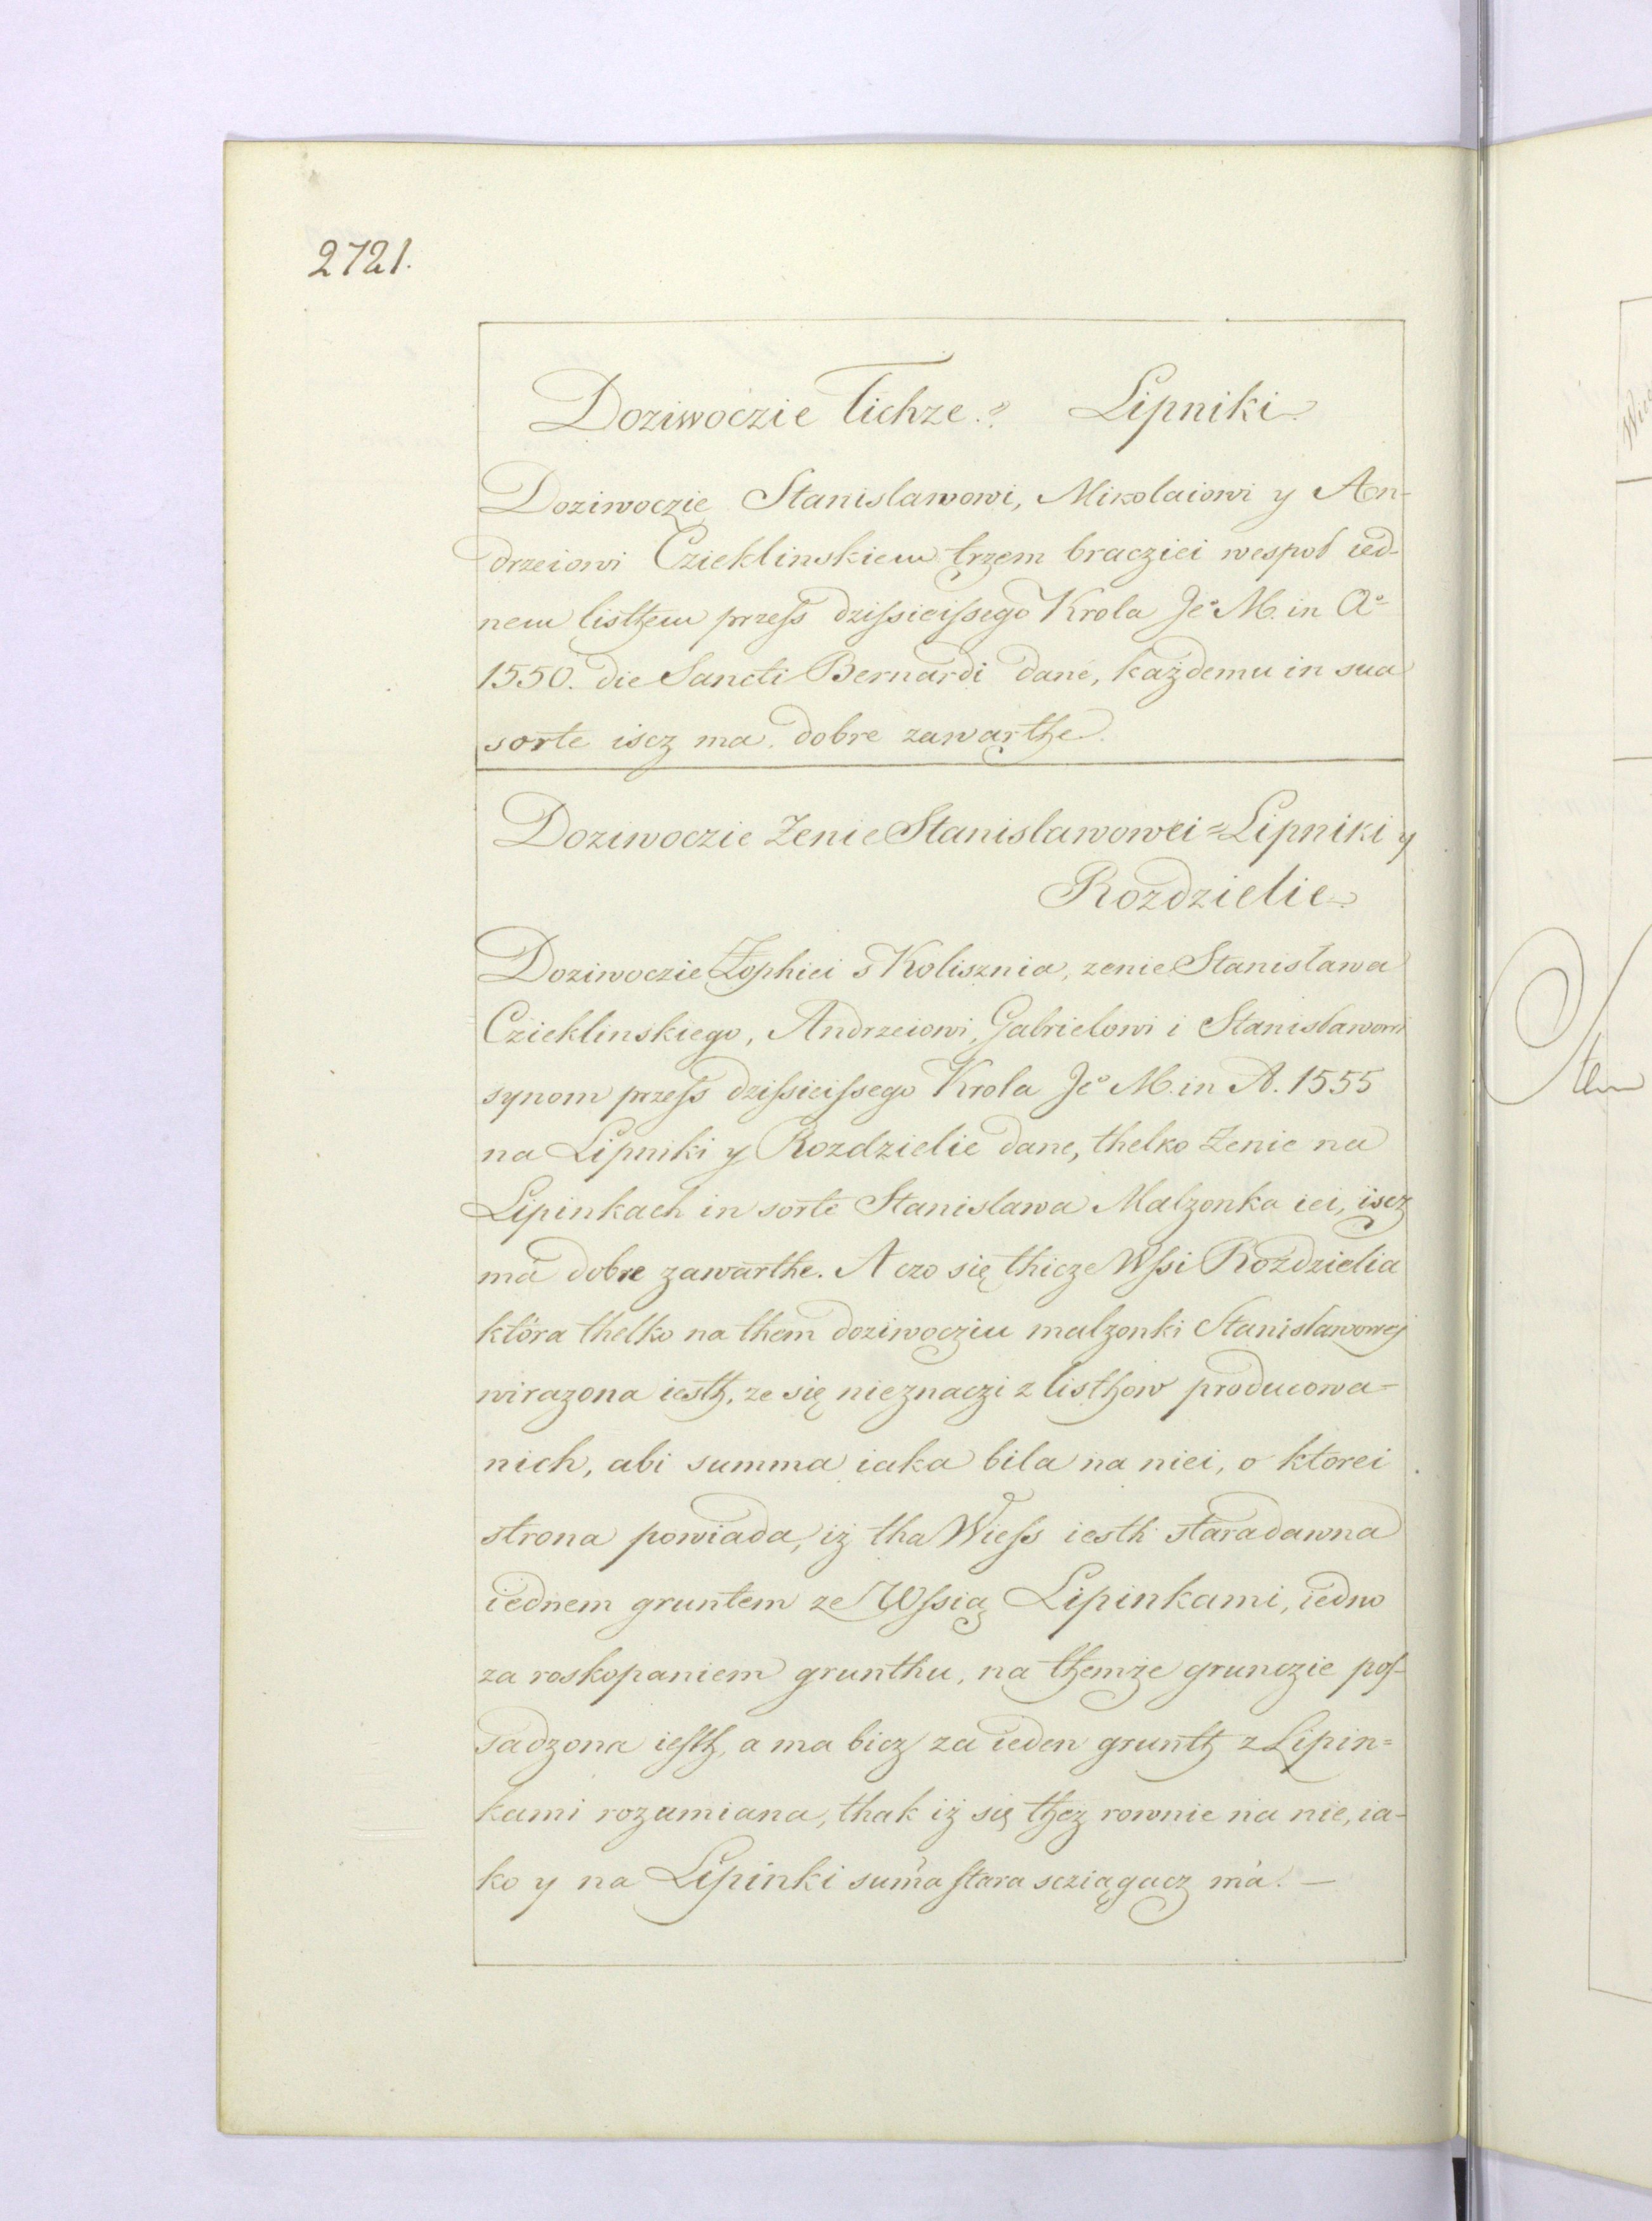 2721.
Doziwoczie Tichze. Lipniki
Doziwoczie Stanislawowi, Mikolaiowi y An-
drzeiowi Czieklinskiem trzem bracziei wespoł ied-
nem listhem przeſs dziſsieiſsego Krola Je° M. in A°
1550. die Sancti Bernardi dane, każdemu in sua
sorte iscz ma dobre zawarthe
Doziwoczie Zenie Stanislawowei = Lipniki y
Rozdzielie
Doziwoczie Zophiei s Kolisznia, zenie Stanisława
Czieklinskiego, Andrzeiowi, Gabrielowi i Stanisławowi
synom przeſs dziſsieiſsego Krola Je° M. in A. 1555
na Lipniki y Rozdzielie dane, thelko Zenie na
Lipinkach in sorte Stanislawa Malzonka iei, iscz
má dobre zawarthe. A czo się thicze Wſsi Rozdzielia
która thelko na them doziwocziu malzonki Stanisławowej
wirazona iesth, ze się nieznaczi z listhow producowa-
nich, abi summa iaka bila na niei, o ktorei
strona powiada, iż tha Wieſs iesth staradawna
iednem gruntem ze Wſsią Lipinkami, iedno
za roskopaniem grunthu, na themże grunczie poſ-
sadzona ieſth, a ma bicz za ieden grunth z Lipin=
kami rozumiana, thak iż się thez rownie na nie, ia-
ko y na Lipinki suma ſtara scziągacz má. —
tem